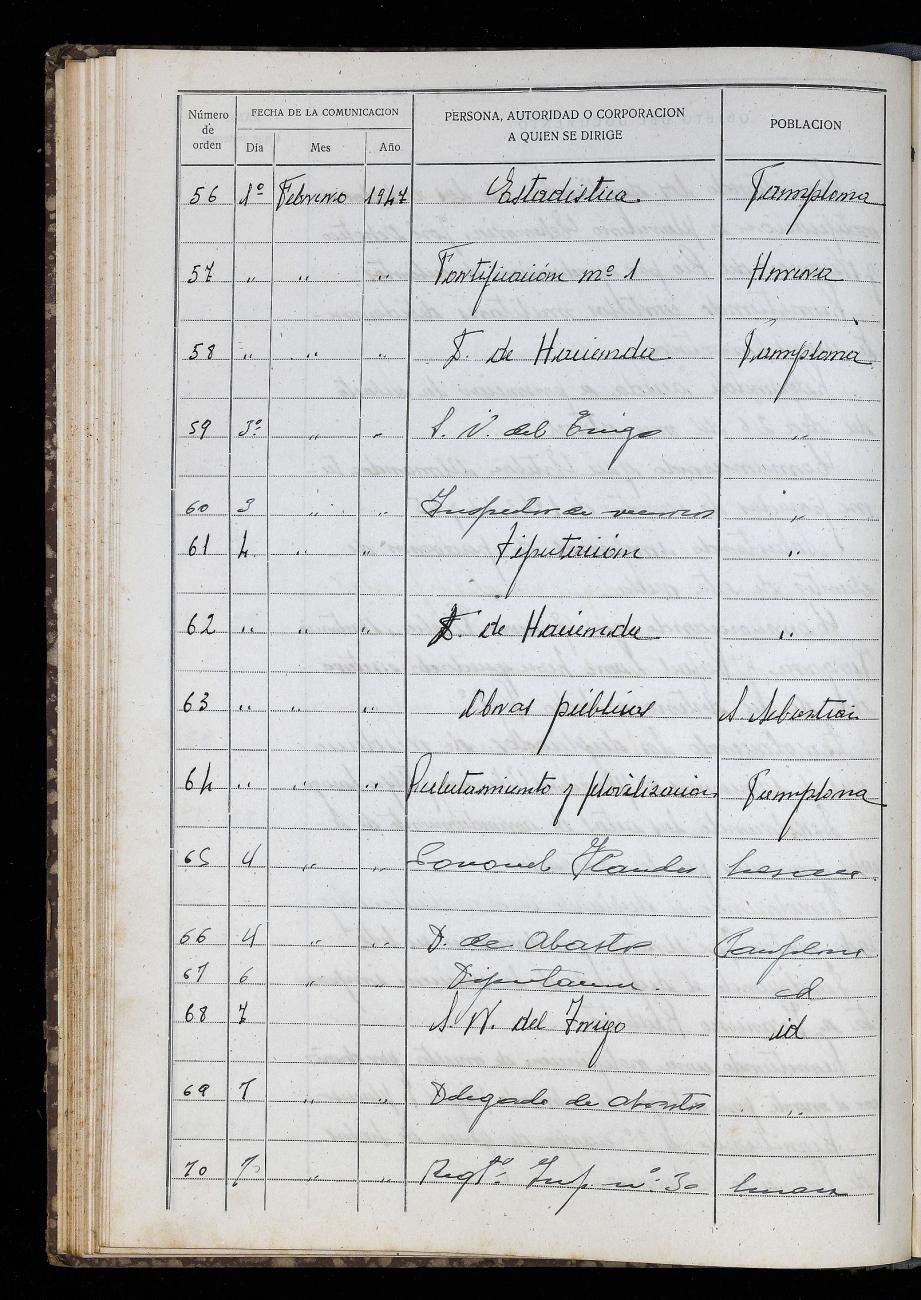 Número de orden FECHA DE LA COMUNICACION PERSONA, AUTORIDAD O CORPORACION A QUIEN SE DIRIGE POBLACION
Día Mes Año
56 1º Febrero 1947 Estadistica Pamplona
57 " " " Fortificación nº 1
58 " " " D. de Hacienda Pamplona
59 3º " " S. N. del Trigo "
60 3 " " Inspector de "
61 4 " " Diputación "
62 " " " D. de Hacienda "
63 " " " Obras públicas S. Sebastian
64 " " " Reclutamiento y Movilización Pamplona
65 4 " " Coronel
66 4 " " D. de Abastos Pamplona
67 6 " " Diputacion id
68 7 S. N. del Trigo id
69 7 " " Delegado de Abastos "
70 7 " " Regtº. Inf. nº 30